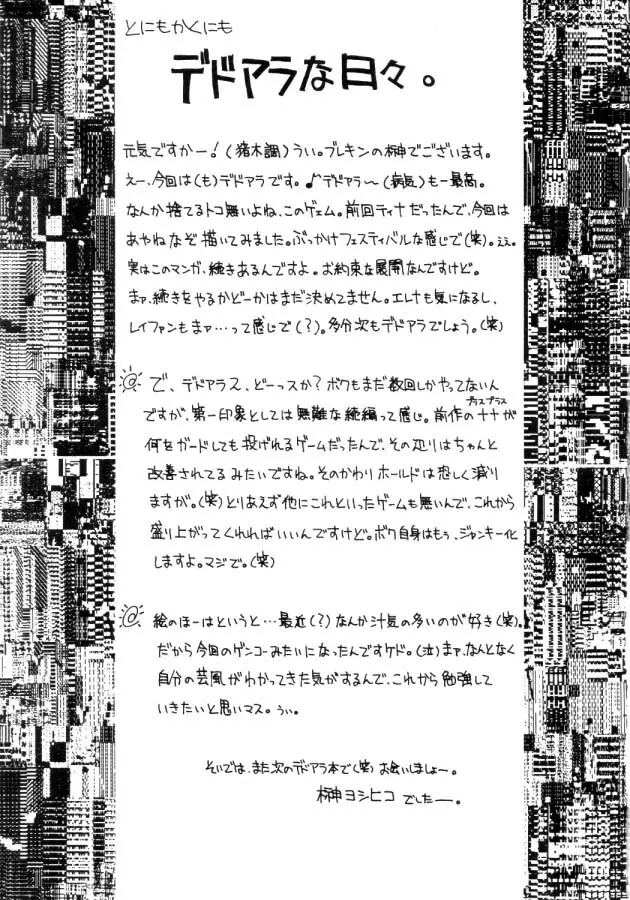 とにもかくにも
デドアラな日々。
元気ですかー!(猪木調)うぃ。ブレキンの榊でございます。
えー、今回は(も)デドアラです。♪デドアラ〜(病気)もー最高。
なんか捨てるトコ無いよね、このゲェム。前回ティナだったんで、今回は
あやねなぞ描いてみました。ぶっかけフェスティバルな感じで(笑)。ええ。
実はこのマンガ、続きあるんですよ。お約束な展開なんですけど。
まァ、続きをやるかどーかはまだ決めてません。エレナも気になるし、
レイファンもまァ…って感じで(?)。多分次もデドアラでしょう。(笑)
で、デドアラ2、どーっスか?ボクもまだ数回しかやってないん
プラスプラス
ですが、第一印象としては無難な続編って感じ。前作の++が
何をガードしても投げれるゲームだったんで、その辺りはちゃんと
改善されてるみたいですね。そのかわりホールドは恐しく減り
ますが。(笑)とりあえず他にこれといったゲームも無いんで、これから
盛り上がってくれればいいんですけど。ボク自身はもぅ、ジャンキー化
しますよ。マジで。(笑)
絵のほーはというと…最近(?)なんか汁気の多いのが好き(笑)。
だから今回のゲンコーみたいになったんですケド。(泣)まァ、なんとなく
自分の芸風がわかってきた気がするんで、これから勉強して
いきたいと思いマス。うぃ。
そいでは、また次のデドアラ本で(笑)お会いしましょー。
榊ヨシヒコ でしたー。